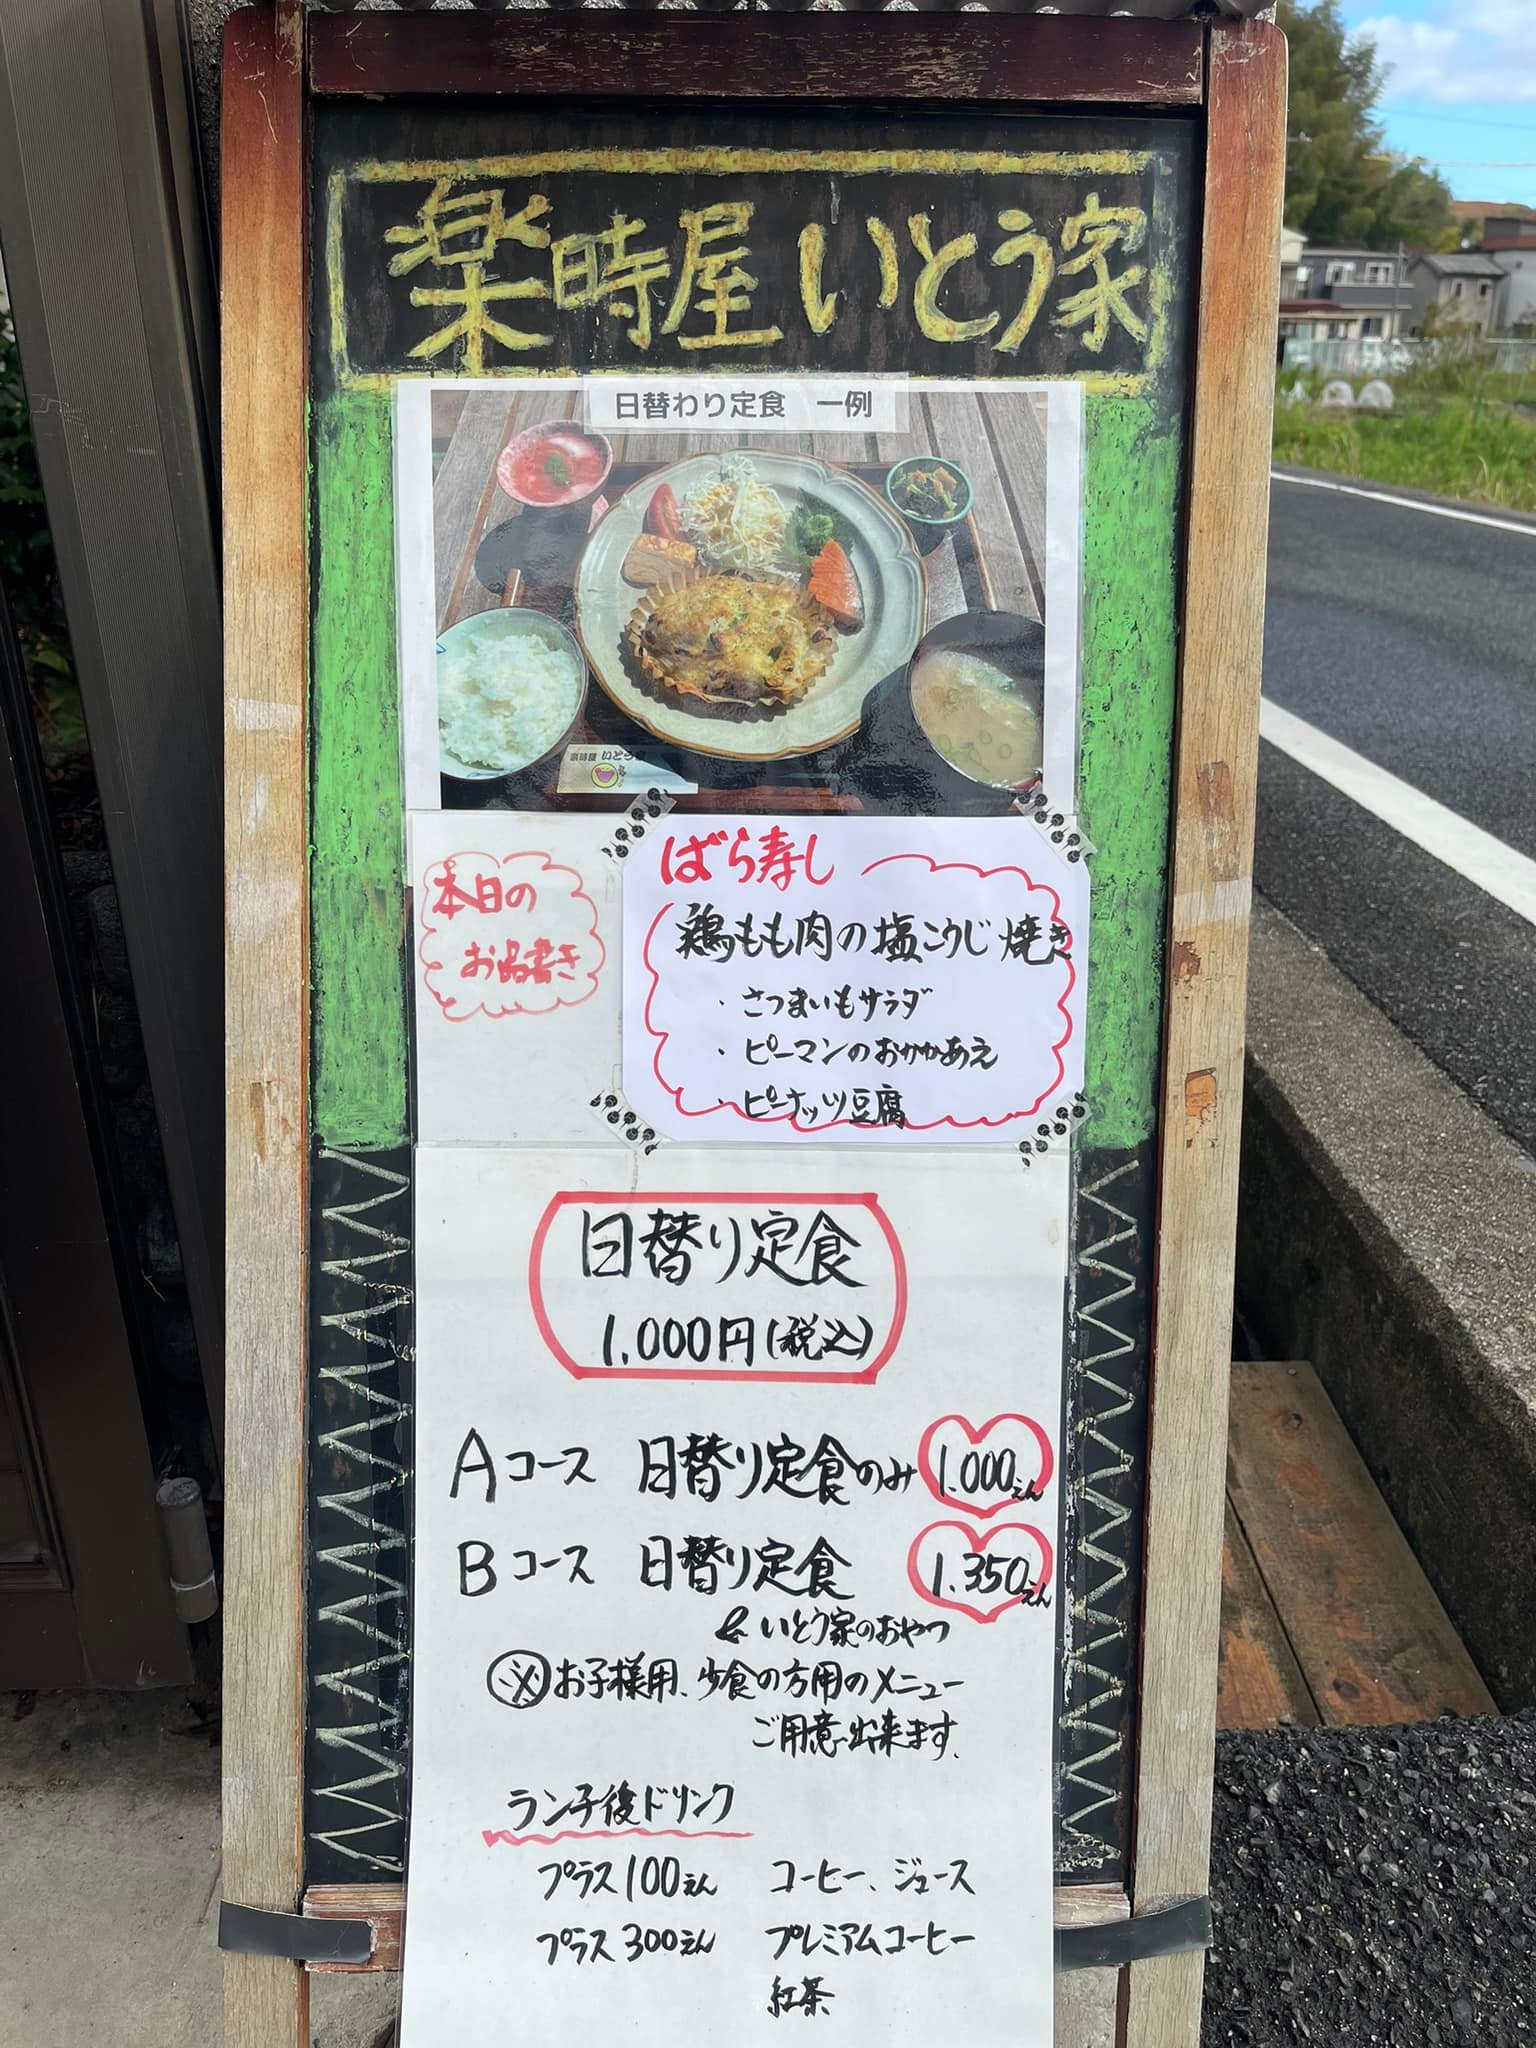 楽時屋 いとう家
日替わり定食 一例
楽時屋 いとう家
本日の
お品書き
ばら寿し
鶏もも肉の塩こうじ焼き
・さつまいもサラダ
・ピーマンのおかかあえ
・ピーナッツ豆腐
日替り定食
1.000円(税込)
Aコース 日替り定食のみ 1.000えん
Bコース 日替り定食 1.350えん
& いとう家のおやつ
※お子様用、少食の方用のメニュー
ご用意出来ます。
ランチ後ドリンク
プラス100えん コーヒー、ジュース
プラス300えん プレミアムコーヒー
紅茶